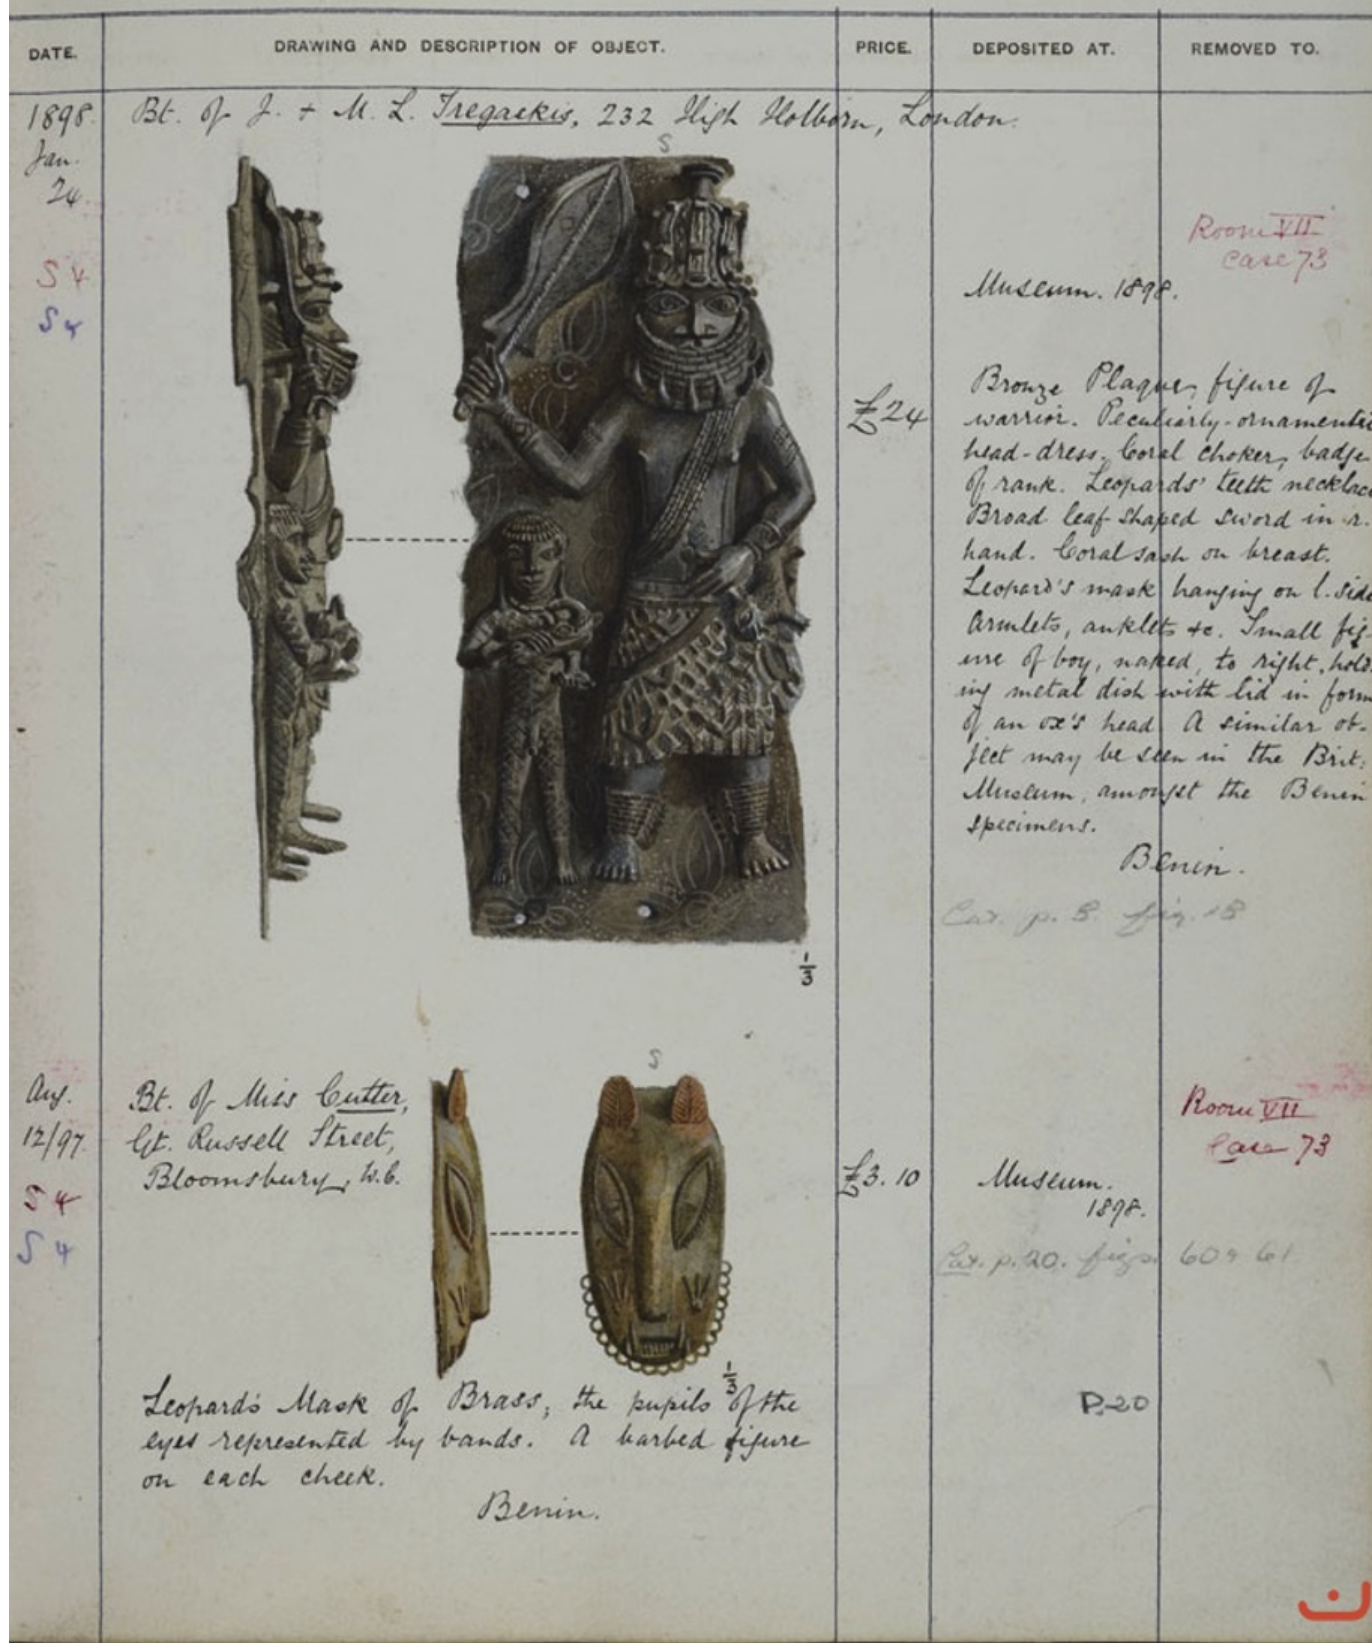 DATE.
DRAWING AND DESCRIPTION OF OBJECT.
PRICE.
DEPOSITED AT.
REMOVED TO.
1898.
Jan.
24.
S 4
S 4
Bt. of J. + M. L. Tregaskis, 232 High Holborn, London.
S
£24
Room VII
Case 73
Museum. 1898.
Bronze Plaque, figure of
warrior. Peculiarly-ornamented
head-dress. Coral choker, badge
of rank. Leopards' teeth necklace
Broad leaf-shaped sword in r.
hand. Coral sash on breast.
Leopard's mask hanging on l. side
Armlets, anklets &c. Small fig
ure of boy, naked, to right, hold
ing metal dish with lid in form
of an ox's head. A similar ob-
ject may be seen in the Brit:
Museum, amongst the Benin
specimens.
Benin.
Cat. p. 8. fig. 18
1/3
Aug.
12/97.
S 4
S 4
Bt. of Miss Cutter,
Gt. Russell Street,
Bloomsbury, W.C.
S
£3.10
Room VII
Case 73
Museum.
1898.
Cat. p. 20. figs. 60 & 61
1/3
Leopard's Mask of Brass; the pupils of the
eyes represented by bands. A barbed figure
on each cheek.
Benin.
P.20